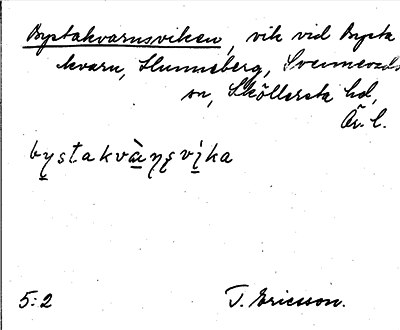 Bystakvarnsviken, vik vid Bysta
kvarn, Hunneberg, Svennevads
sn, Sköllersta hd,
Ör. l.
bystakvàṇṣvi̇ka
5:2
T. Ericsson.